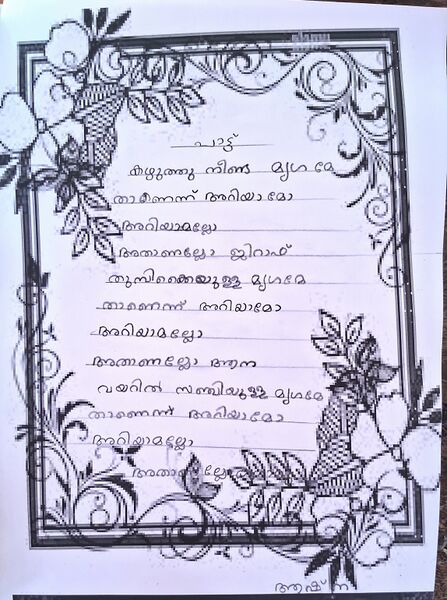 പാട്ട്
കഴുത്തു നീണ്ട മൃഗ മേ
താണെന്ന് അറിയാമോ
അറിയാമല്ലോ
അതാണല്ലോ ജിറാഫ്
തുമ്പിക്കൈയുള്ള മൃഗമേ
താണെന്ന് അറിയാമോ
അറിയാമല്ലോ
അതാണല്ലോ ആന
വയറിൽ സഞ്ചിയുള്ള മൃഗമേ
താണെന്ന് അറിയാമോ
അറിയാമല്ലോ
അതാണല്ലോ